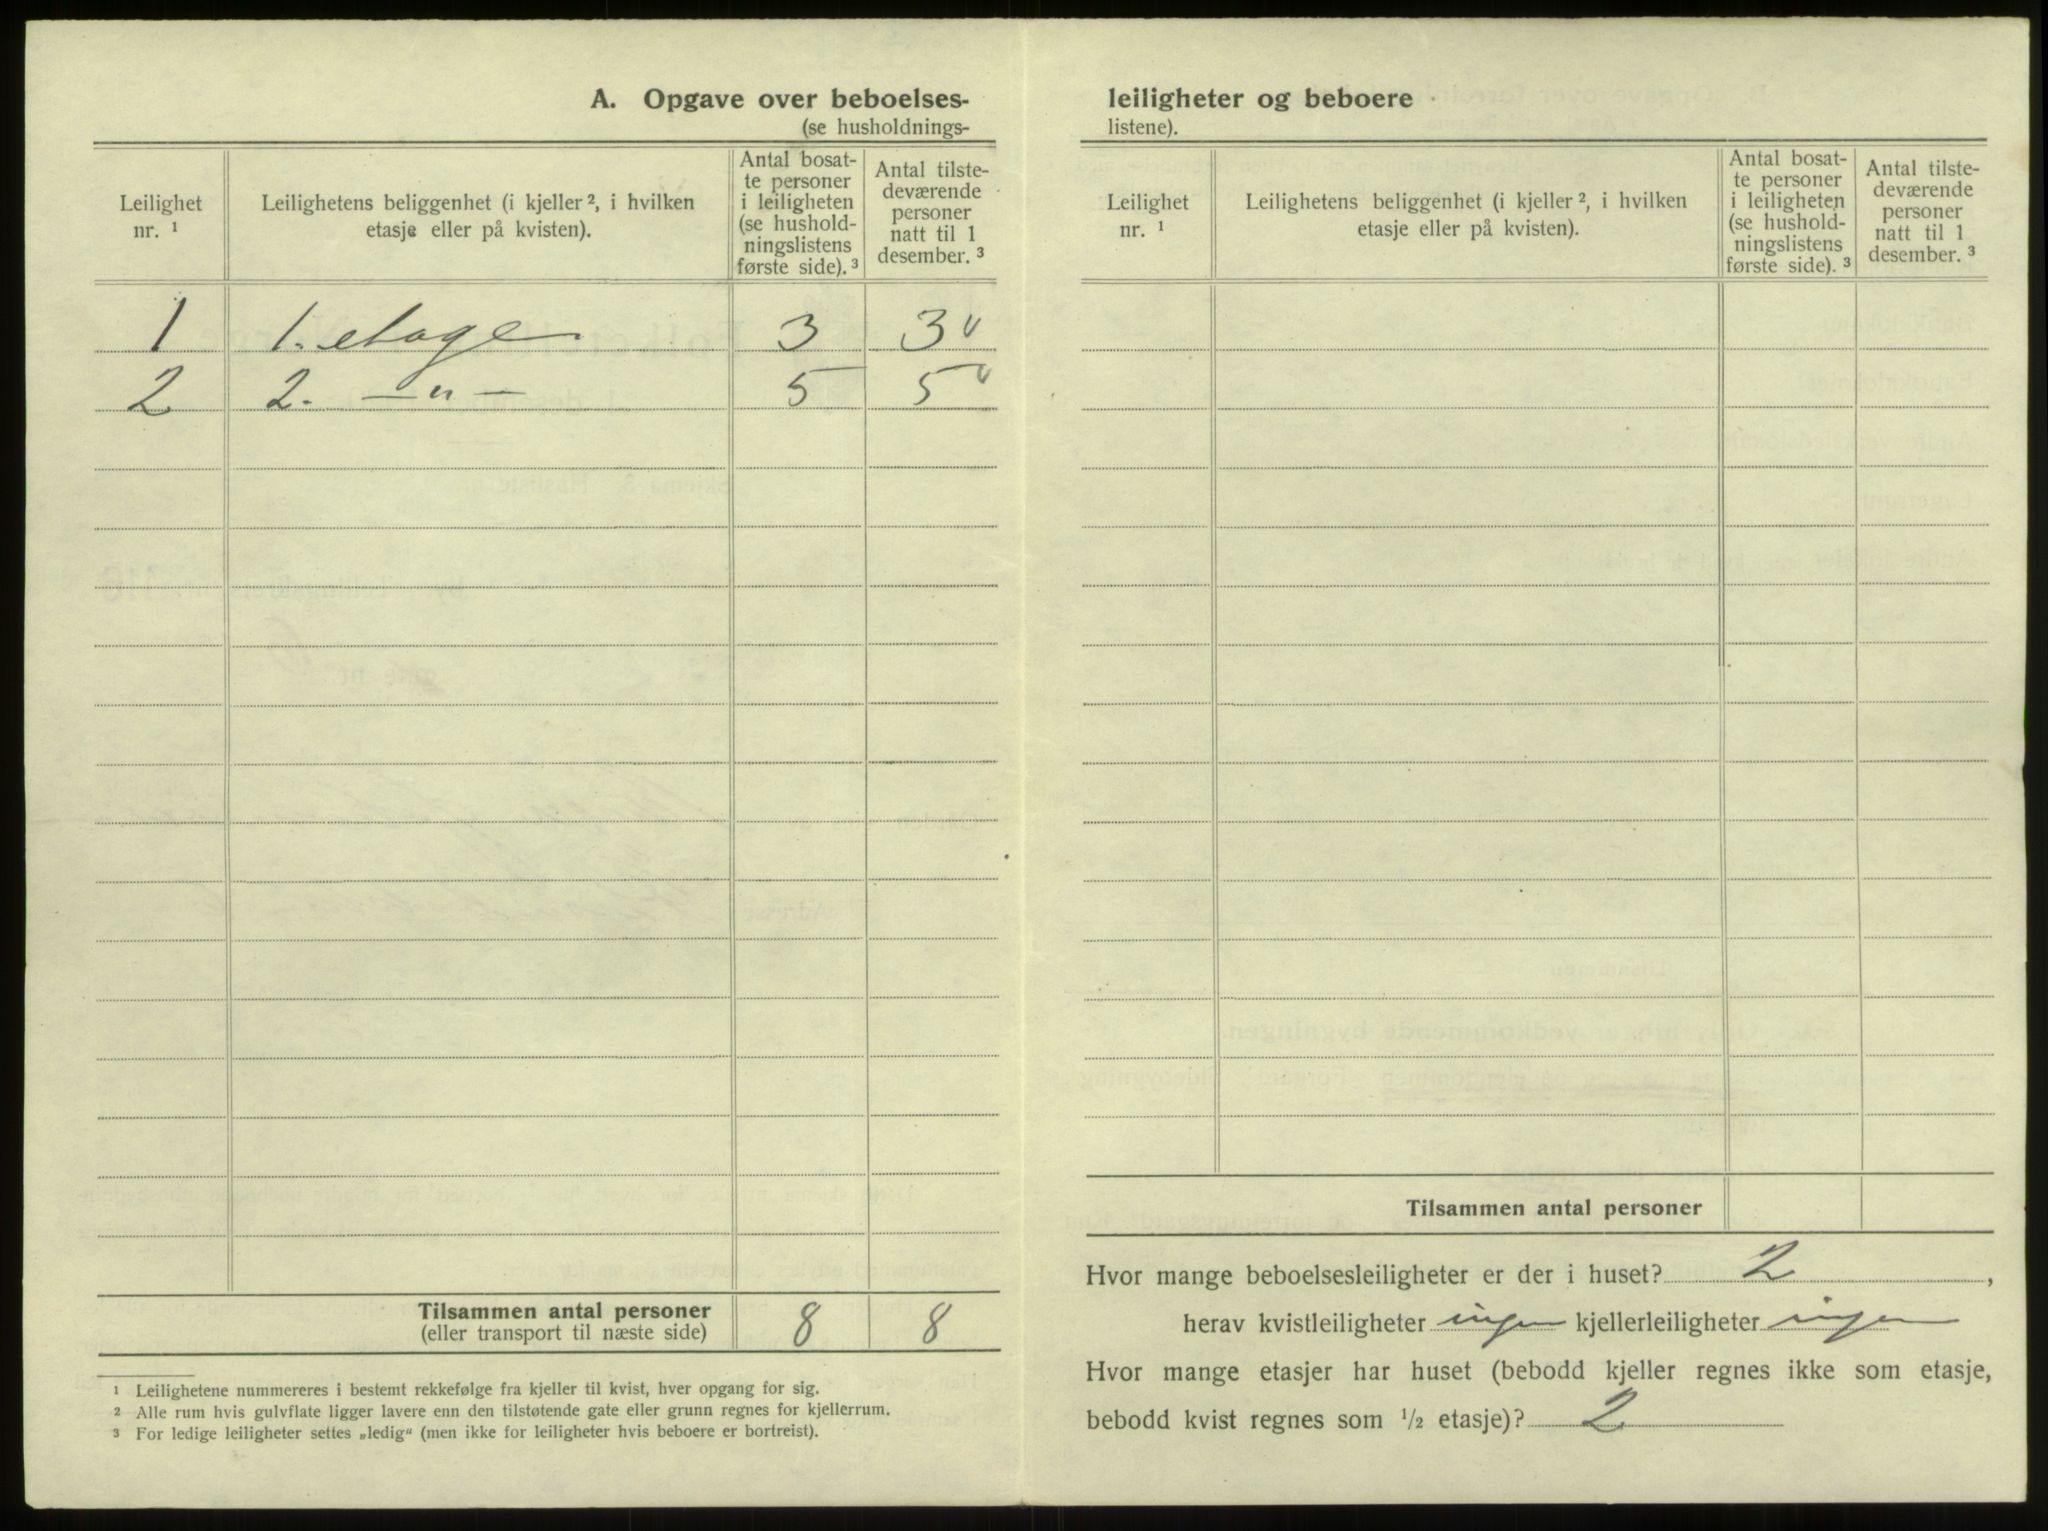 A. Opgave over beboelses-
(se husholdnings-
Leilighet
nr. ¹
Leilighetens beliggenhet (i kjeller ², i hvilken
etasje eller på kvisten).
Antal bosat-
te personer
i leiligheten
(se hushold-
ningslistens
første side). ³
Antal tilste-
deværende
personer
natt til 1
desember. ³
1 1. etage 3 3 v
2 2. — „ — 5 5 v
Tilsammen antal personer 8 8
(eller transport til næste side)
¹ Leilighetene nummereres i bestemt rekkefølge fra kjeller til kvist, hver opgang for sig.
² Alle rum hvis gulvflate ligger lavere enn den tilstøtende gate eller grunn regnes for kjellerrum.
³ For ledige leiligheter settes „ledig" (men ikke for leiligheter hvis beboere er bortreist).
leiligheter og beboere
listene).
Leilighet
nr. ¹
Leilighetens beliggenhet (i kjeller ², i hvilken
etasje eller på kvisten).
Antal bosat-
te personer
i leiligheten
(se hushold-
ningslistens
første side). ³
Antal tilste-
deværende
personer
natt til 1
desember. ³
Tilsammen antal personer
Hvor mange beboelsesleiligheter er der i huset? 2,
herav kvistleiligheter ingen kjellerleiligheter ingen
Hvor mange etasjer har huset (bebodd kjeller regnes ikke som etasje,
bebodd kvist regnes som ½ etasje)? 2